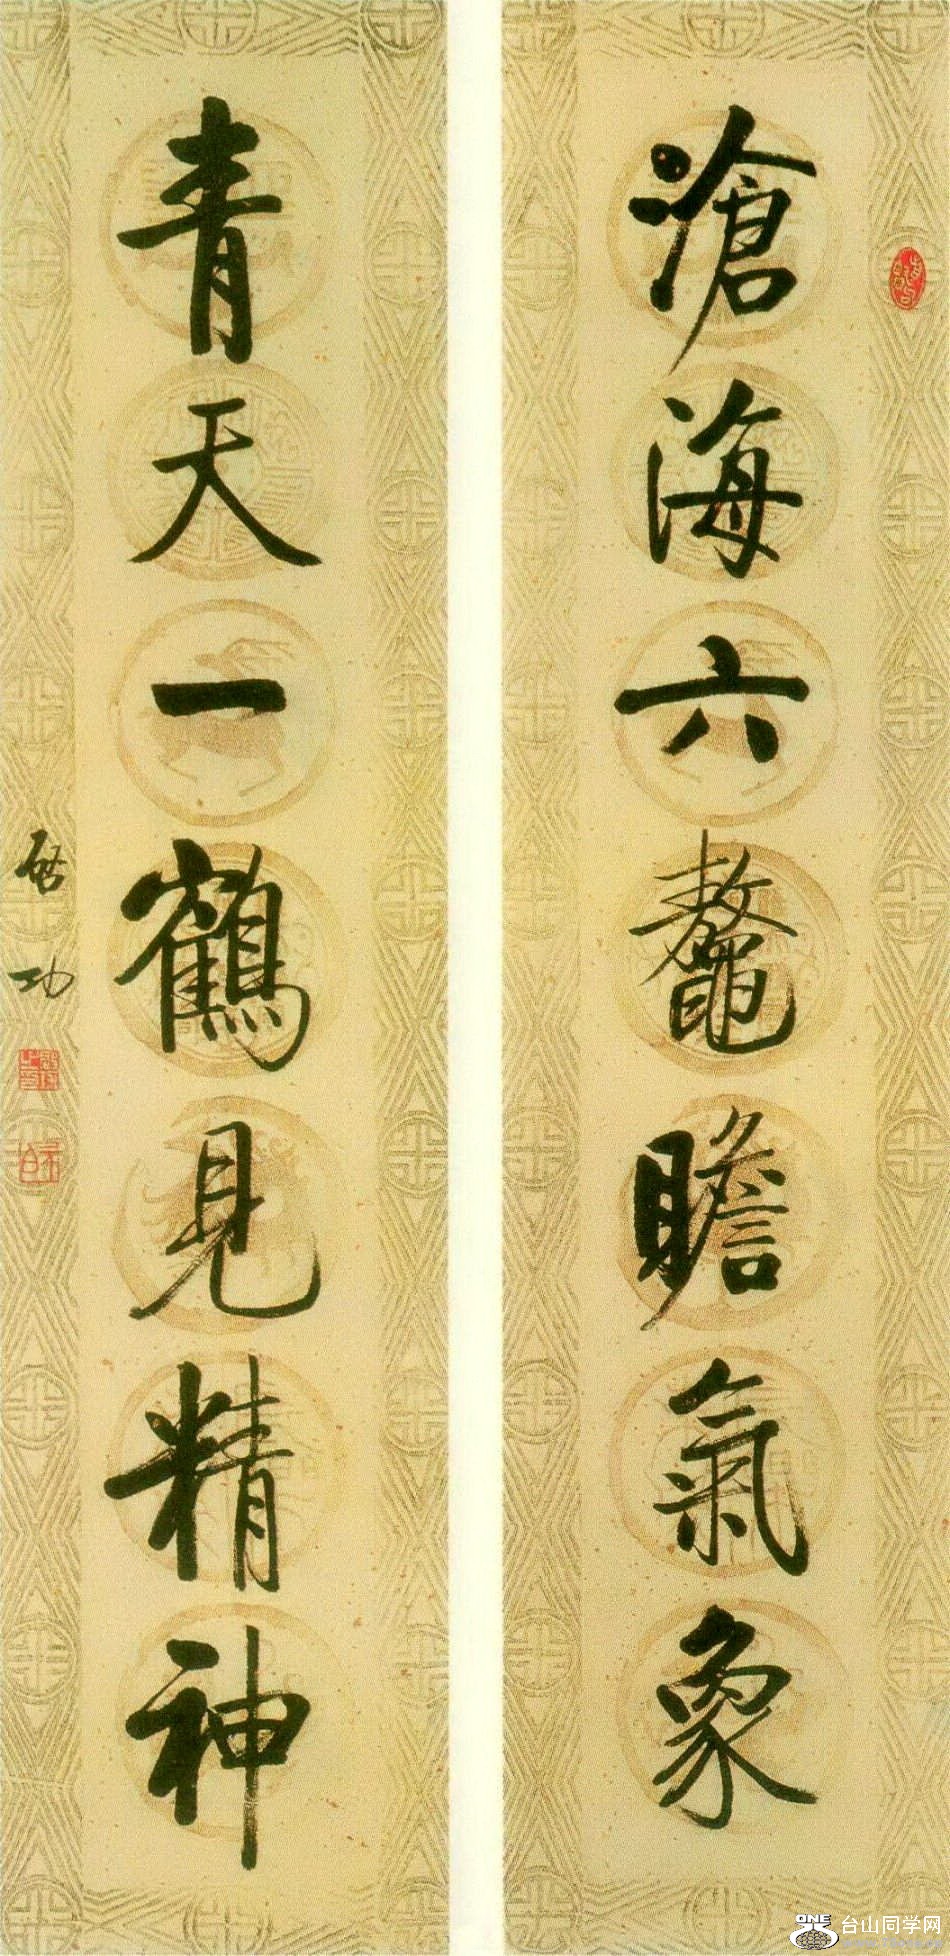 滄海六鼇瞻氣象
青天一鶴見精神
啟功
ONE
台山同学网